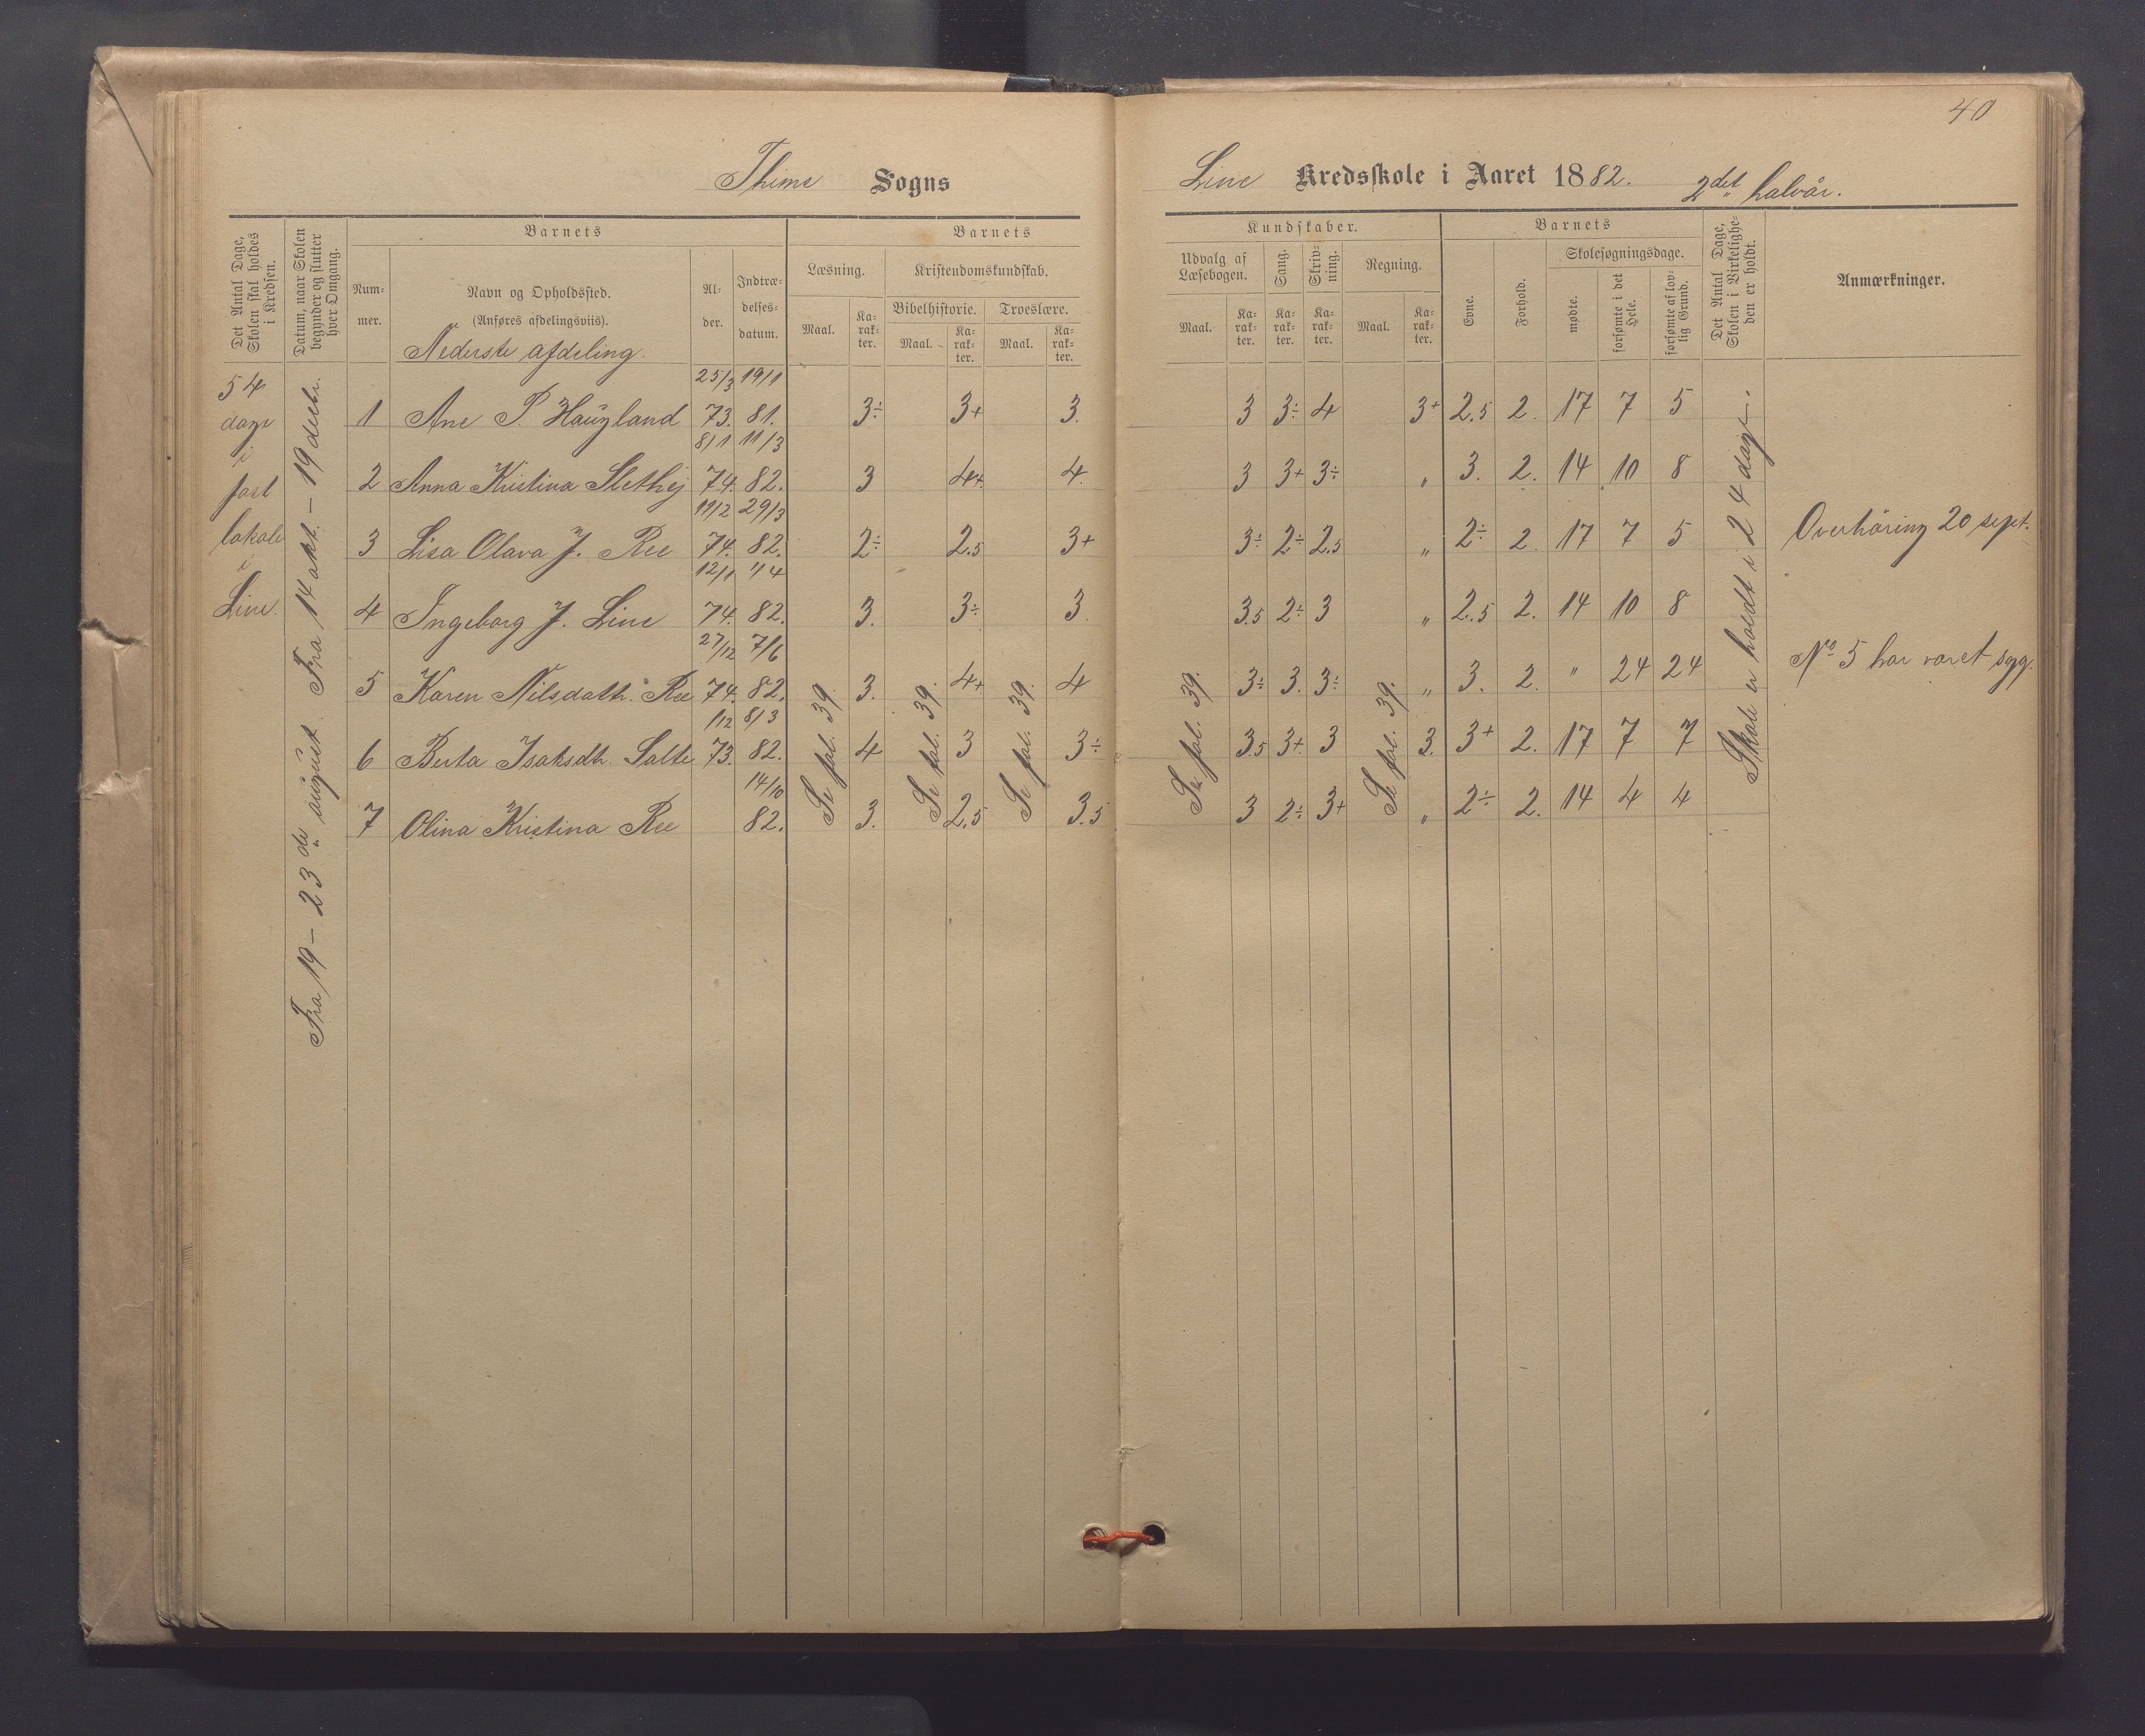 40
Thime Sogns
Line Kredsskole i Aaret 1882. 2det halvår.
Det Antal Dage, Skolen skal holdes i Kredsen.
Datum, naar Skolen begynder og slutter hver Omgang.
Barnets
Num-
mer.
Navn og Opholdssted.
(Anføres afdelingsviis).
Nederste afdeling.
Al-
der.
Indtræ-
delses-
datum.
Barnets
Læsning.
Maal.
Ka-
rak-
ter.
Kristendomskundskab.
Bibelhistorie.
Maal.
Ka-
rak-
ter.
Troeslære.
Maal.
Ka-
rak-
ter.
Kundskaber.
Udvalg af
Læsebogen.
Maal.
Ka-
rak-
ter.
Sang.
Ka-
rak-
ter.
Skriv-
ning.
Ka-
rak-
ter.
Regning.
Maal.
Ka-
rak-
ter.
Barnets
Evne.
Forhold.
Skolesøgningsdage.
mødte.
forsømte i det
Hele.
forsømte af lov-
lig Grund.
Det Antal Dage,
Skolen i Virkelighe-
den er holdt.
Anmærkninger.
54
dage
i
fast
lokale
i
Line.
Fra 19 – 23de august. Fra 14 okt. – 19 decbr.
25/3 19/1
1 Ane P. Haugland 73. 81. 3÷ 3+ 3. 3 3÷ 4 3+ 2.5 2. 17 7 5
8/1 11/3
2 Anna Kristina Slethej 74. 82. 3 4+ 4. 3 3+ 3÷ " 3. 2. 14 10 8
11/2 29/3
3 Lisa Olava J. Ree 74. 82. 2÷ 2.5 3+ 3÷ 2÷ 2.5 " 2÷ 2 17 7 5 Overhøring 20 sept.
12/1 1/4
4 Ingeborg J. Line 74. 82. 3. 3÷ 3 3.5 2÷ 3 " 2.5 2. 14 10 8
27/12 7/6
5 Karen Nilsdatr. Ree 74. 82. 3. 4+ 4 3÷ 3. 3÷ " 3. 2. " 24 24 No 5 har været syg.
1/12 8/3
6 Berta Isaksdtr. Salte 73. 82. 4 3 3÷ 3.5 3+ 3 3. 3+ 2. 17 7 7
14/10
7 Olina Kristina Ree 82. 3. 2.5 3.5 3 2÷ 3+ " 2÷ 2. 14 4 4
Se fol. 39.
Se fol. 39.
Se fol. 39.
Se fol. 39.
Se fol. 39.
Skole er holdt i 24 dage.